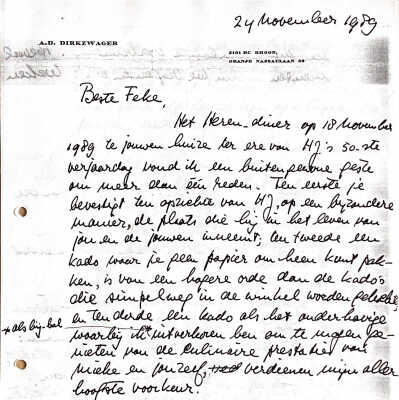 24 November 1989
A.D. DIRKZWAGER
3161 HC RHOON,
ORANJE NASSAULAAN
Beste Feke,
Het Heren-diner op 18 November
1989 te jouwen huize ter ere van HJ's 50-ste
verjaardag vond ik een buitengewone geste
om meer dan één reden. Ten eerste je
bevestigt ten opzichte van HJ, op een bijzondere
manier, de plaats die hij in het leven van
jou en de jouwen inneemt; ten tweede een
kado waar je geen papier om heen kunt pak-
ken, is van een hogere orde dan de kado's
die simpelweg in de winkel worden gekocht,
en ten derde een kado als het onderhavige
* als bij-bel
waarbij ik* uitverkoren ben om te mogen ge-
nieten van de culinaire prestaties van
Mieke en jouzelf, verdienen mijn aller
hoogste voorkeur.